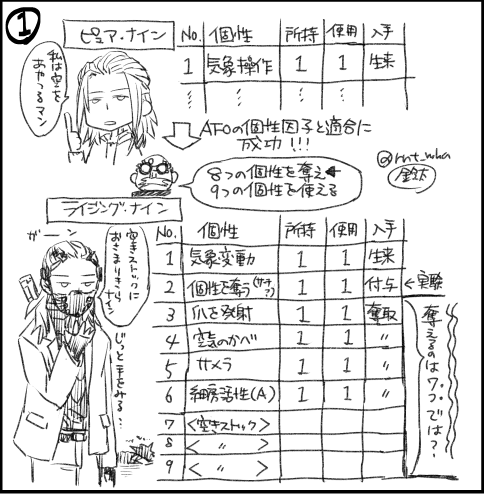 ①
ピュア・ナイン
私は空を
あやつるマン
No. 個性 所持 使用 入手
1 気象操作 1 1 生来
⋮ ⋮ ⋮ ⋮
AFOの個性因子と適合に
成功!!!
8つの個性を奪え
9つの個性を使える
@rnt_wha
ライジング・ナイン
ガーン
空きストックに
おさまりきら
ナイン
じっと手をみる…
No. 個性 所持 使用 入手
1 気象変動 1 1 生来
2 個性を奪う 1 1 付与 ←実験
3 爪を発射 1 1 奪取
4 空気のかべ 1 1 〃
5 サメラ 1 1 〃
6 細胞活性(A) 1 1 〃
7 <空きストック>
8 < 〃 >
9 < 〃 >
奪えるのは7つでは?